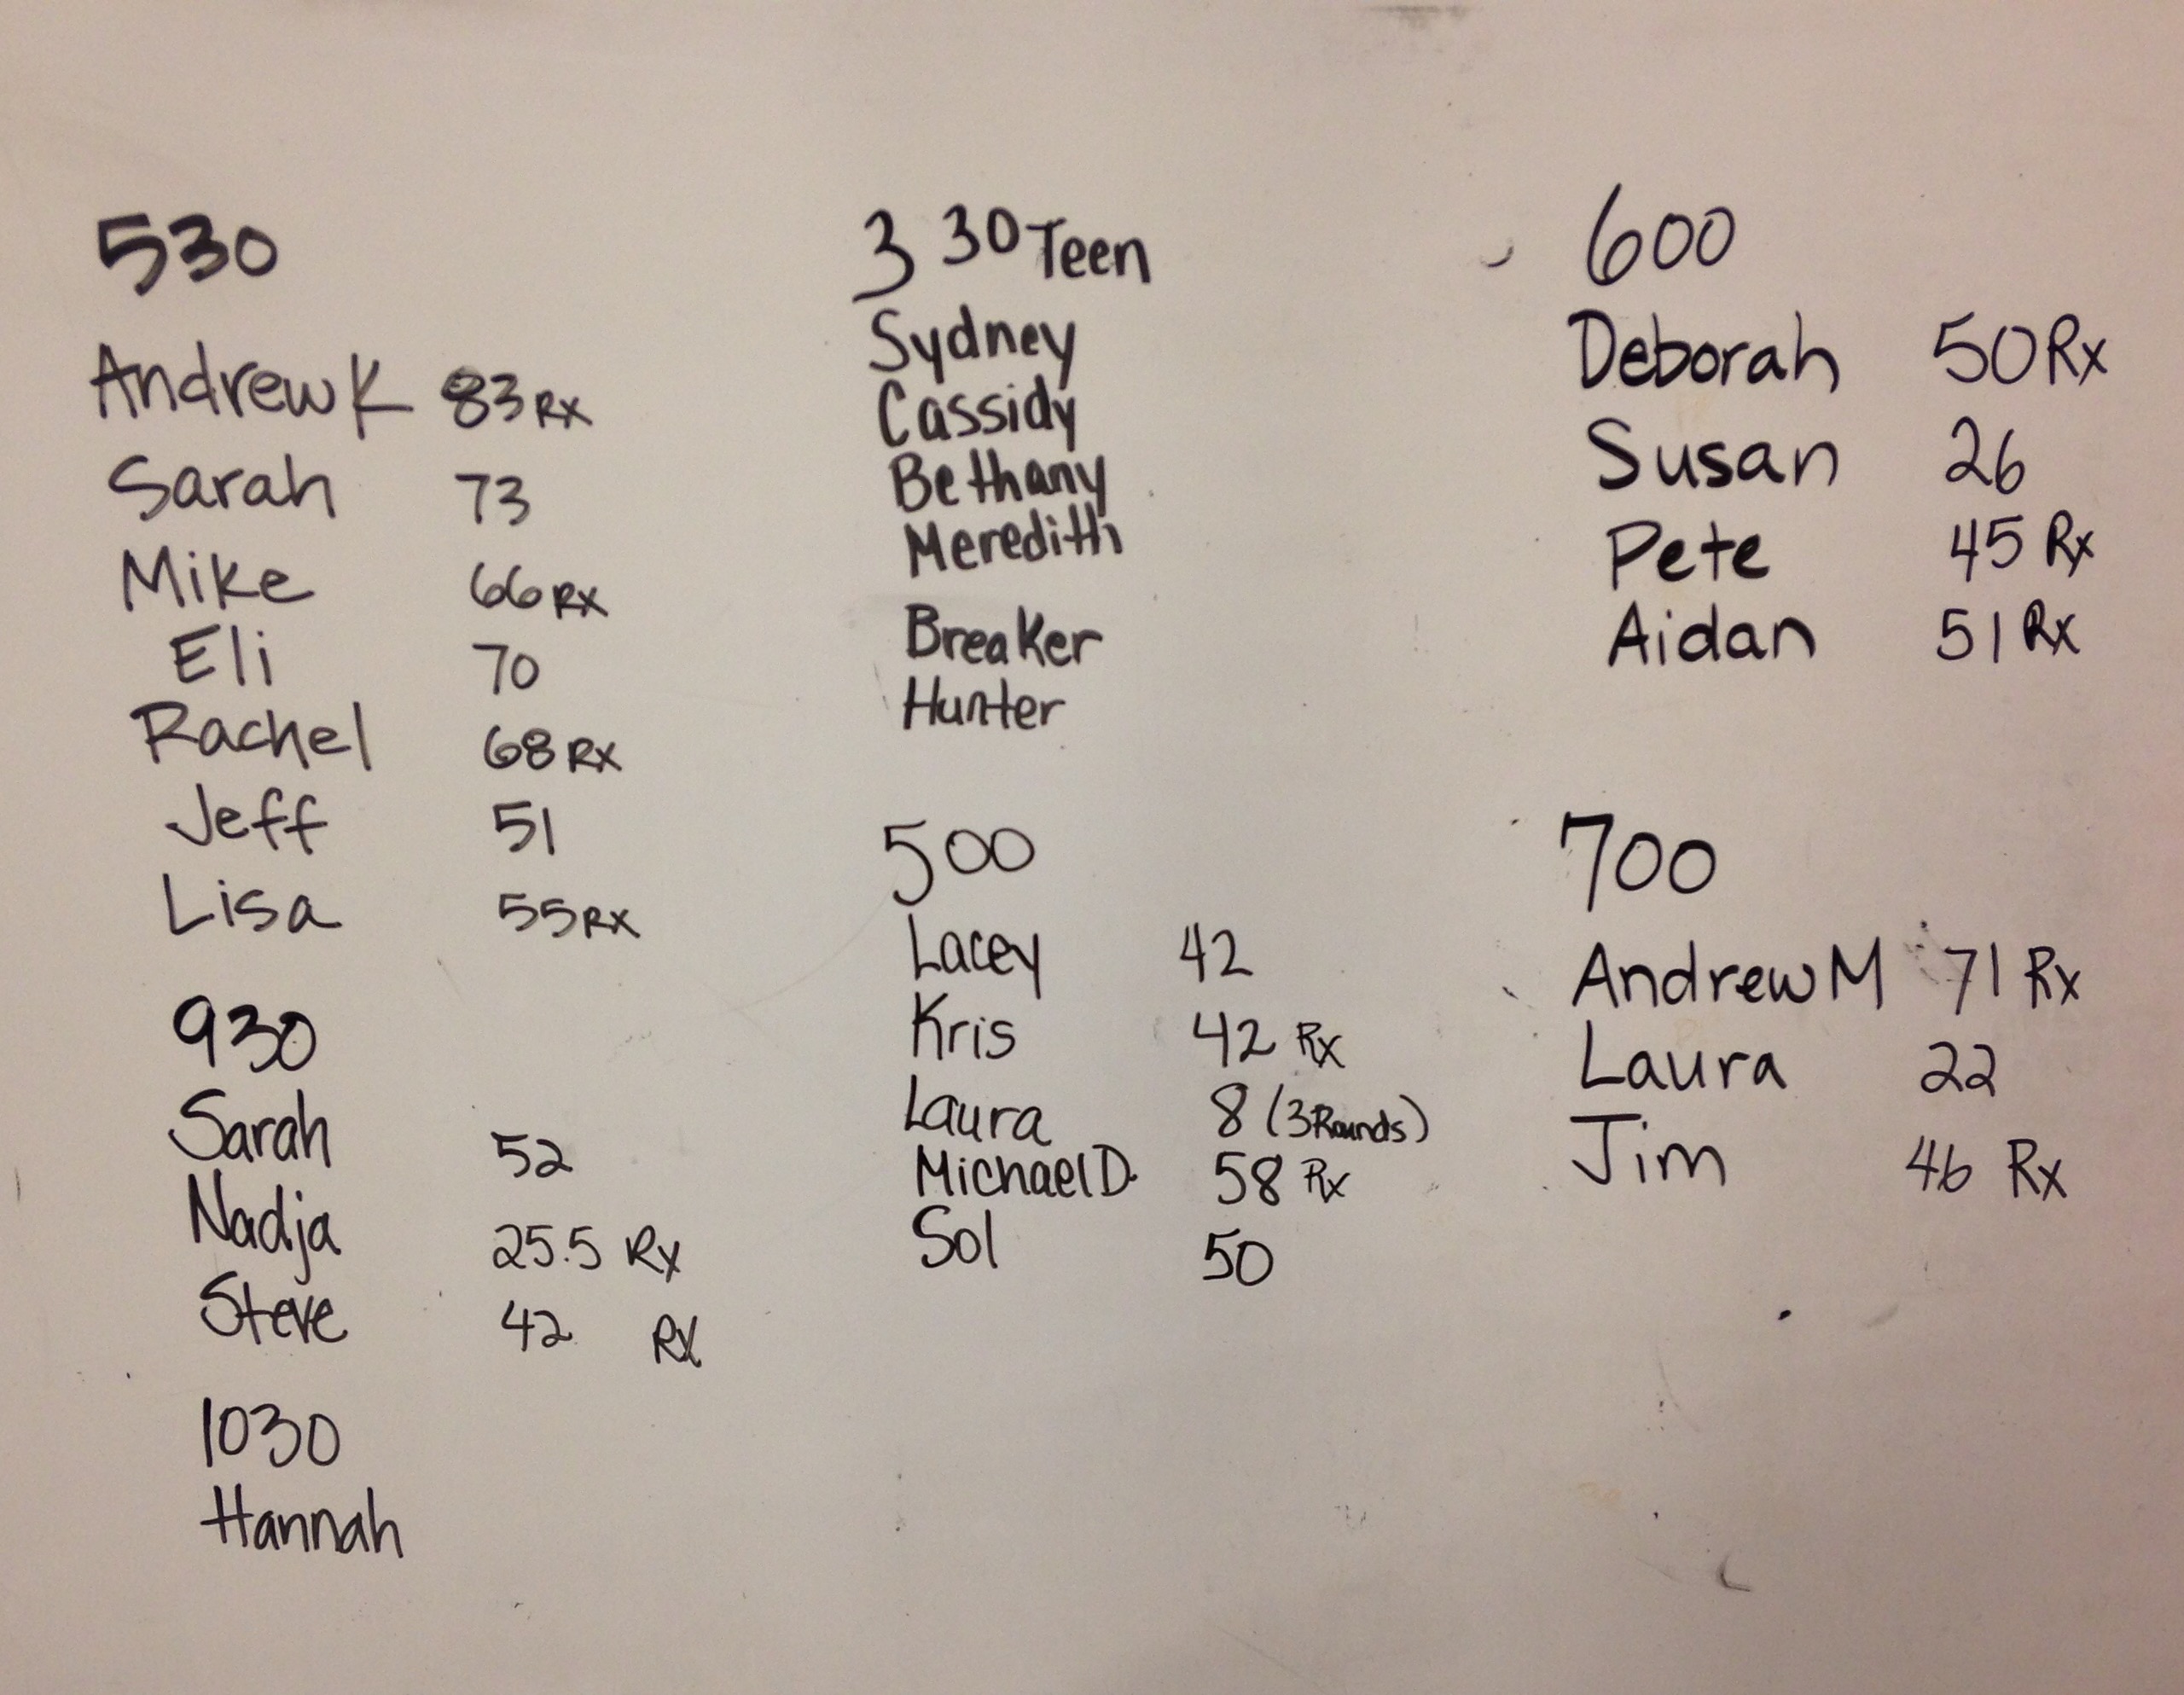 530
Andrew K 83 RX
Sarah 73
Mike 66 RX
Eli 70
Rachel 68 RX
Jeff 51
Lisa 55 RX
930
Sarah 52
Nadja 25.5 Rx
Steve 42 RX
1030
Hannah
3 30 Teen
Sydney
Cassidy
Bethany
Meredith
Breaker
Hunter
500
Lacey 42
Kris 42 Rx
Laura 8 (3 Rounds)
Michael D. 58 Rx
Sol 50
600
Deborah 50 Rx
Susan 26
Pete 45 Rx
Aidan 51 Rx
700
Andrew M 71 Rx
Laura 22
Jim 46 Rx